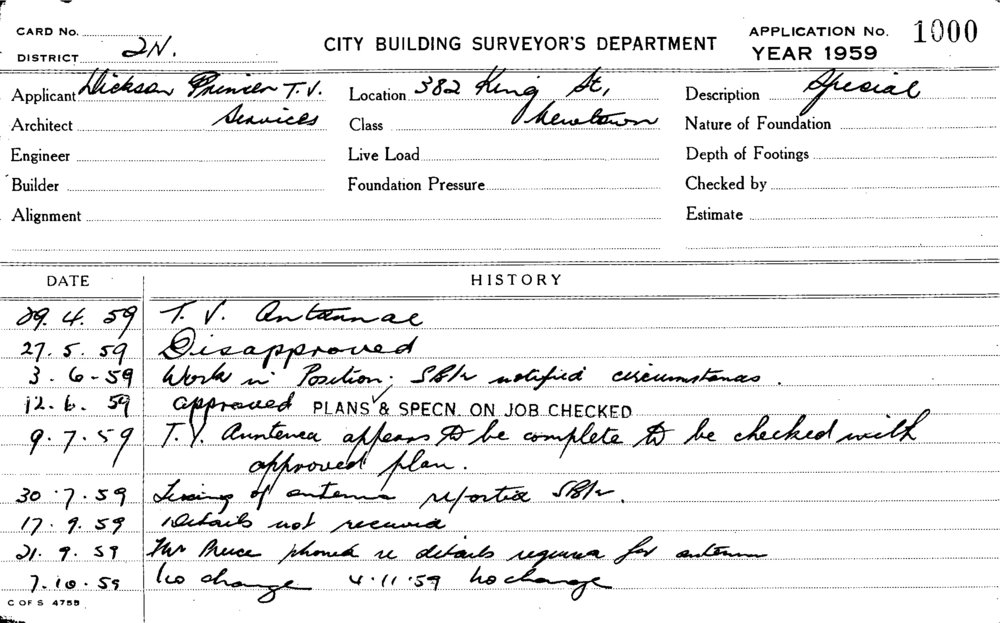 CARD No.
DISTRICT 2N.
CITY BUILDING SURVEYOR'S DEPARTMENT
APPLICATION No. 1000
YEAR 1959
Applicant Dickson Primer T.V. Location 382 King St, Description Special
Architect Services Class Newtown Nature of Foundation
Engineer Live Load Depth of Footings
Builder Foundation Pressure Checked by
Alignment Estimate
DATE HISTORY
29. 4. 59 T. V. Antannae
27. 5. 59 Disapproved
3. 6-59 Work in Position; notified circumstances.
12. 6. 59 approved PLANS & SPECN. ON JOB CHECKED
9. 7. 59 T. V. appears to be complete to be checked with
approved plan.
30. 7. 59 of antenna reported
17. 9. 59 Details not received
21. 9. 59 Mr phoned re details required for antenna
7. 10. 59 No change 4. 11. 59 No change
C OF S 4755